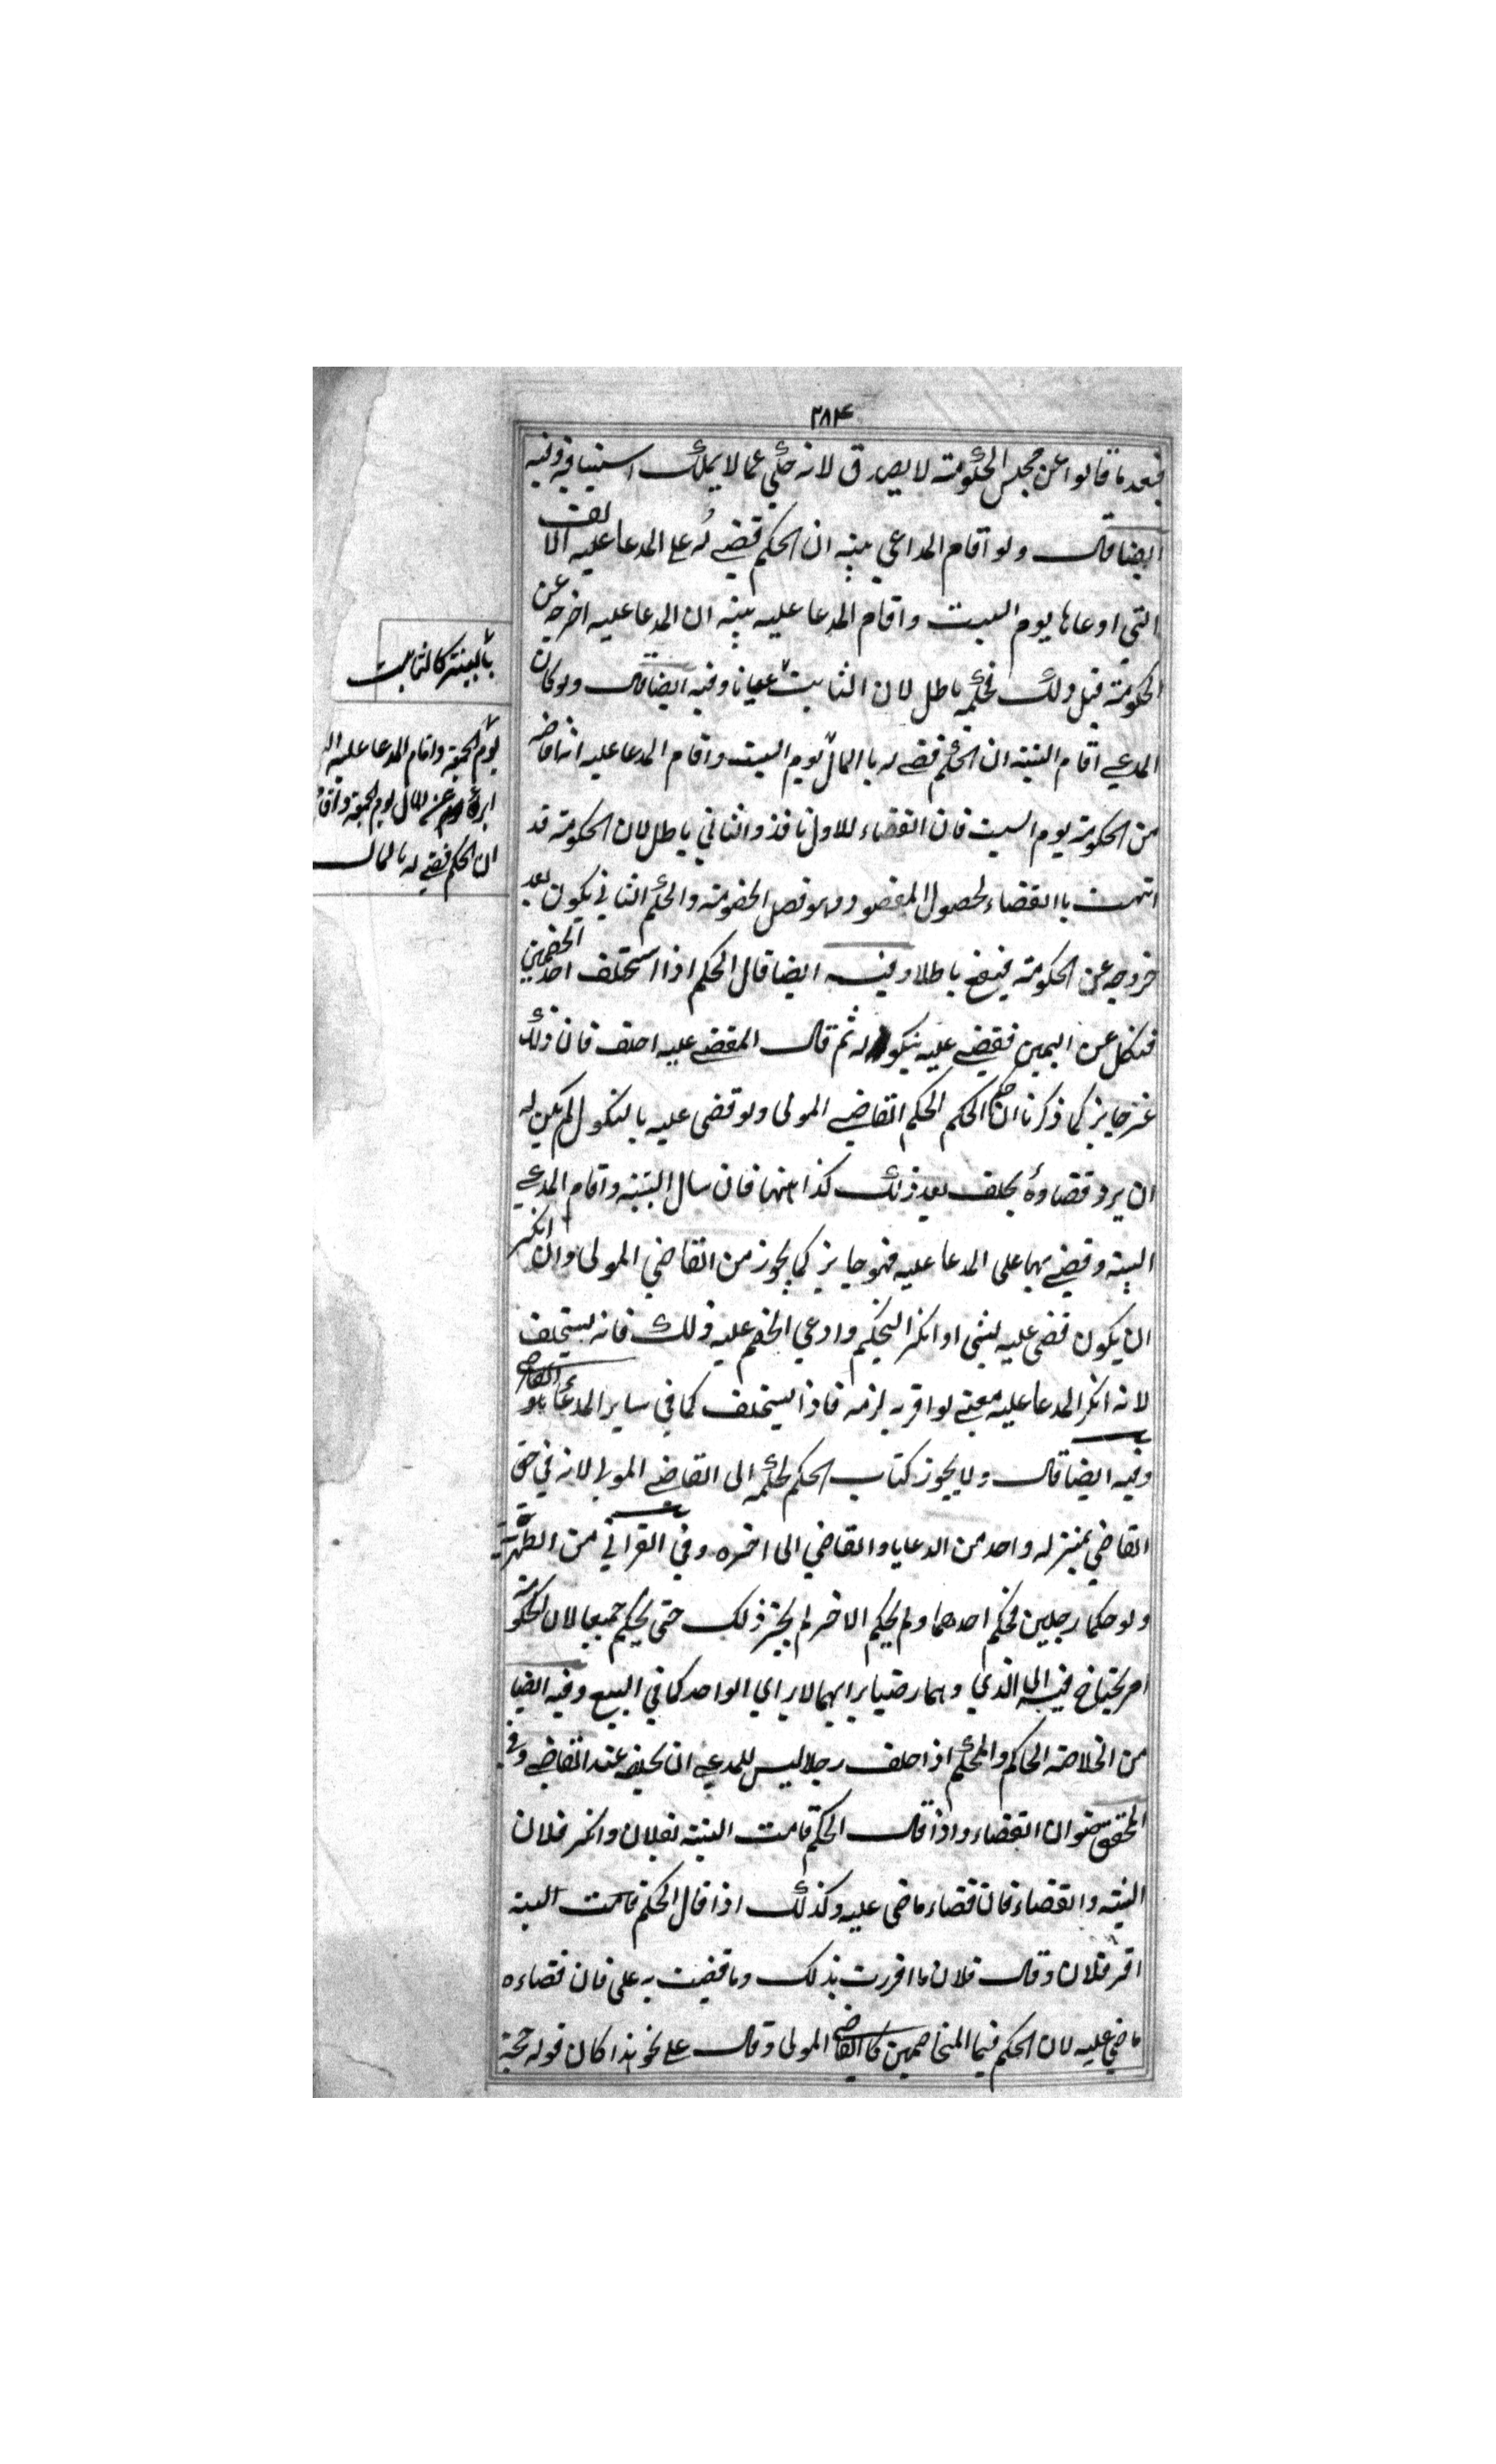 ۳۸۴
فبعد ما قالوا عن مجلس الحكومة لا يصدق لانه حكي عما لا يملك استينافه وفيه
ايضا قال ولو اقام المداعي بينه ان الحكم قضے له علے المدعا عليه الالف
التي ادعاها يوم السبت واقام المدعا عليه بينه ان المدعا عليه اخرجه عن
الحكومة قبل ذلك فحكمه باطل لان الثابت عيانا وفيه ايضا قال ولو كان
المدعے اقام البينه ان الحكم قضے له باالمال يوم السبت واقام المدعا عليه انه اخرجه
من الحكومة يوم السبت فان القضاء للاول نافذ والثاني باطل لان الحكومة قد
انتهت باالقضاء لحصول المقصود وهو فصل الخصومة والحكم الثاني يكون بعد
خروجه عن الحكومة فيقع باطلا وفيه ايضا قال الحكم اذا استحلف احد الخصمين
فنكل عن اليمين فقضے عليه بنكوله ثم قال المقضے عليه احلف فان ذلك
غير جايز كما ذكرنا ان حكم الحكم الحكم القاضے المولى ولو قضى عليه بالنكول لم يكن له
ان يرد قضاوه بحلف بعد ذلك كذا هنها فان سال البينه واقام المدعے
البينه وقضے بها على المدعا عليه فهو جايز كما يجوز من القاضي المولى وان انكر
ان يكون قضى عليه بشى او انكر التحكيم وادعي الخصم عليه ذلك فانه يستحلف
لانه انكر المدعا عليه معنے لو اقر به لزمه فاذا يستحلف كما في ساير المدعا
وفيه ايضا قال ولا يجوز كتاب الحكم لحكمه الى القاضے المولى لانه في حق
القاضي بمنزله واحد من الرعايا والقاضي الى اخره وفي القراني من الظهيرية
ولو حكما رجلين فحكم احدهما ولم يحكم الاخر لم يجز ذلك حتى يحكم جميعا لان الحكومة
امر يحتاج فيه الى الذي وهما رضيا برايهما لا براي الواحد كما في البيع وفيه ايضا
من الخلاصة الحاكم والمحكم اذا حلف رجلا ليس للمدعے ان يحلفه عند القاضے وفي
المحقق ضوان القضاء واذا قال الحكم قامت البينه بفلان وانكر فلان
البينه والقضاء فان قضاء ماضى عليه وكذلك اذا قال الحكم قامت البينه
اقر فلان وقال فلان ما اقررت بذلك وما قضيت به على فان قضاءه
ماضي عليه لان الحكم فيما المتخاصمين كالقاضے المولى وقال علے نحو هذا كان قوله حجة
بالبينة كالثابت
يوم الجمعة واقام المدعا عليه
ابراه عن المال يوم الجمعة
ان الحكم قضے له بالمال